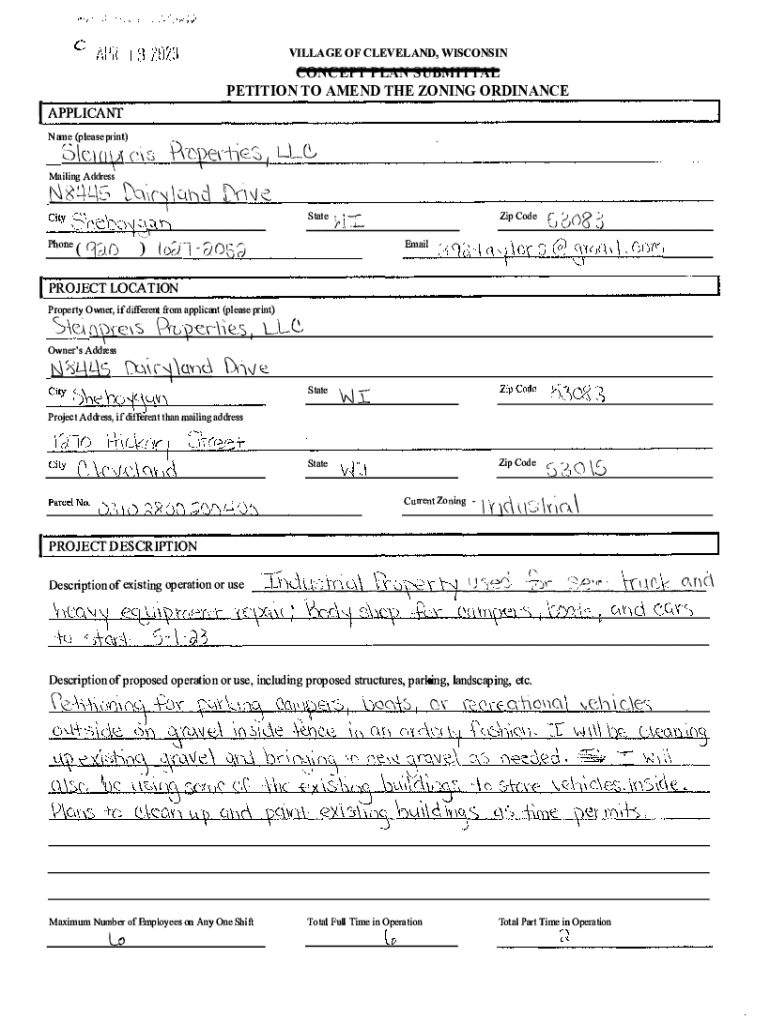 C APR 19 2023
VILLAGE OF CLEVELAND, WISCONSIN
CONCEPT PLAN SUBMITTAL
PETITION TO AMEND THE ZONING ORDINANCE
APPLICANT
Name (please print)
Steinpreis Properties, LLC
Mailing Address
N8445 Dairyland Drive
City Sheboygan State WI Zip Code 53083
Phone (920) 627-2052 Email
PROJECT LOCATION
Property Owner, if different from applicant (please print)
Steinpreis Properties, LLC
Owner's Address
N8445 Dairyland Drive
City Sheboygan State WI Zip Code 53083
Project Address, if different than mailing address
1270 Hickory Street
City Cleveland State WI Zip Code 53015
Parcel No. Current Zoning - Industrial
PROJECT DESCRIPTION
Description of existing operation or use Industrial Property used for semi truck and
heavy equipment repair; Body shop for campers, boats, and cars
to start 5-1-23
Description of proposed operation or use, including proposed structures, parking, landscaping, etc.
Petitioning for parking campers, boats, or recreational vehicles
outside on gravel inside fence in an orderly fashion. I will be cleaning
up existing gravel and bringing in new gravel as needed. I will
also be using some of the existing buildings to store vehicles inside.
Plans to clean up and paint existing buildings as time permits.
Maximum Number of Employees on Any One Shift Total Full Time in Operation Total Part Time in Operation
6 6 2